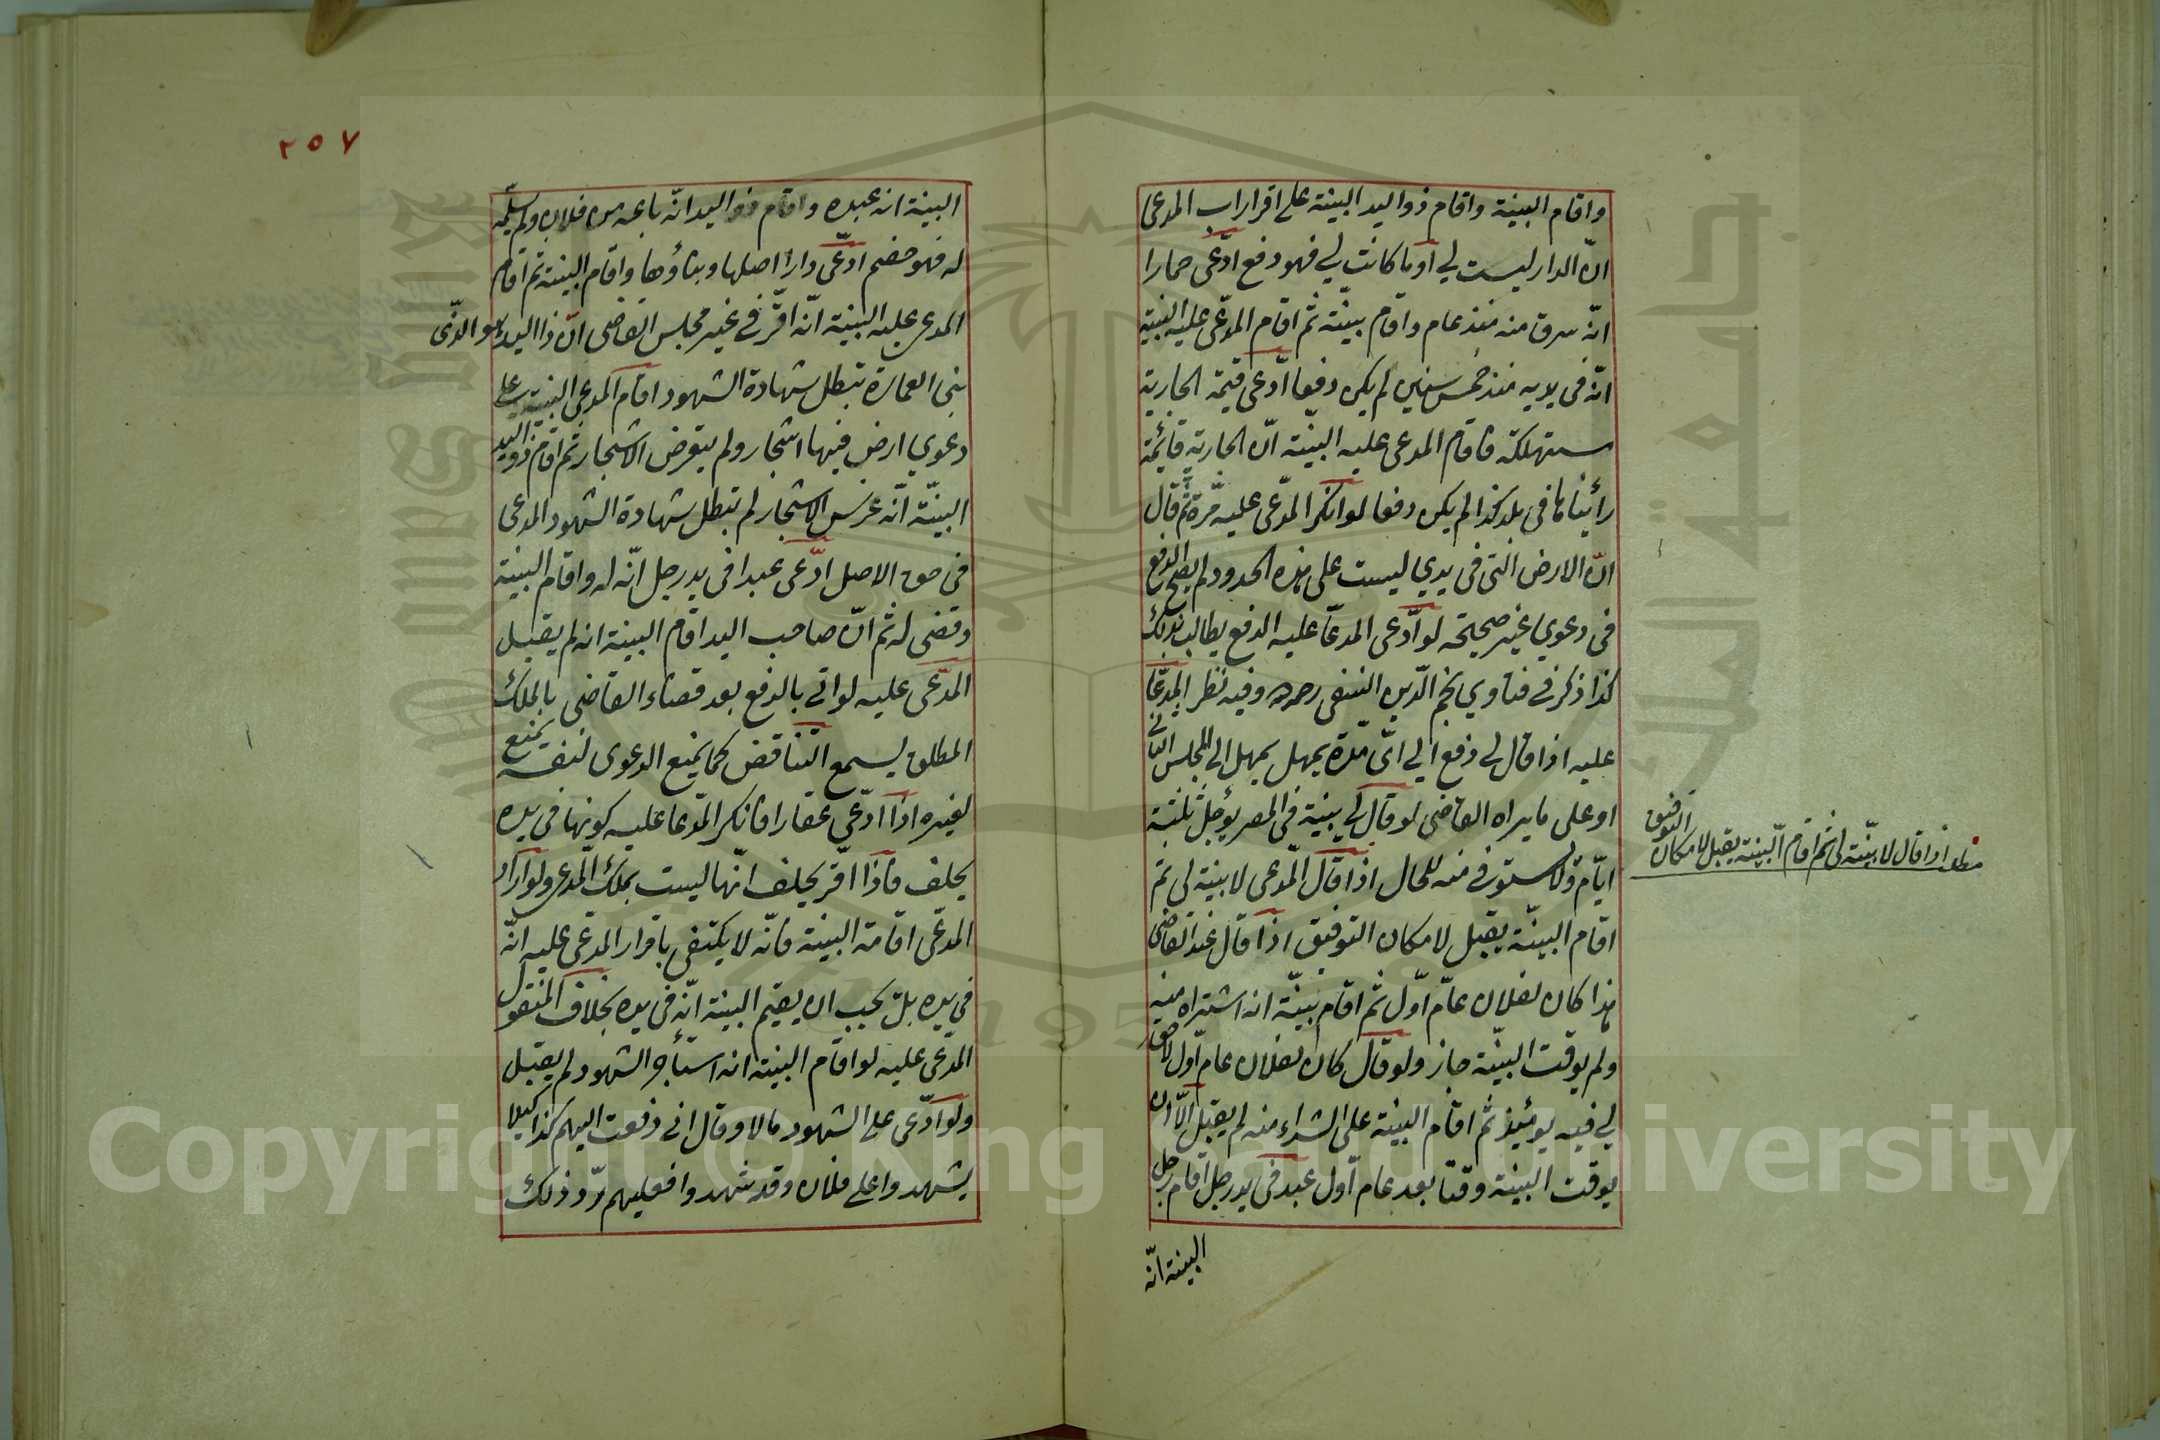 واقام البينة واقام ذواليد البينة على اقرار اب المدعى
انّ الدار ليست لي او ما كانت لي فهو دفع ادّعى حمارا
انّه سرق منه منذ عام واقام بينّة ثم اقام المدّعى عليه البينة
انّه فى يديه منذ خمس سنين لم يكن دفعا ادّعى قيمة الجارية
مستهلكة فاقام المدعى عليه البينّة انّ الجارية قائمة
رأيناها فى بلد كذا لم يكن دفعا لو انكر المدّعى عليه مرّة ثم قال
انّ الارض التى فى يدي ليست على هذه الحدود لم يصح الدفع
فى دعوي غير صحيحة لو ادّعى المدعّا عليه الدفع يطالب بذلك
كذا ذكر في فتاوي نجم الدّين النسفى رحمه وفيه نظر المدعّا
عليه اذا قال لى دفع الي اىّ مدّة يمهل يمهل الى المجلس الثانى
او على ما يراه القاضى لو قال لي بينة فى المصر يؤجل ثلثة
ايّام ولا يستوفى منه للحال اذا قال المدّعى لا بينة لى ثم
اقام البينّة يقبل لامكان التوفيق اذا قال عند القاضى
هذا كان لفلان عامّ اوّل ثم اقام بينّة انه اشتراه منه
ولم يوقت البينّة جاز ولو قال كان لفلان عام اوّل لا حق
لي فيه يومئيذ ثم اقام البينة على الشراء منه لم يقبل الّا ان
يوقت البينة وقتا بعد عام اوّل عبد فى يد رجل اقام رجل
البينة انّه
مطلب اذا قال لا بينّة لى ثم اقام البينّة يقبل لامكان
التوفيق
٢٥٧
البينة انه عبده واقام ذو اليد انّه باعه من فلان ولم يسلّمه
له فهو خصم ادّعى دارا اصلها وبناؤها واقام البينة ثم اقام
المدعى عليه البينة انّه اقرّ في غير مجلس القاضى انّ ذا اليد هو الذّى
بنى العمارة تبطل شهادة الشهود اقام المدعى البينة على
دعوي ارض فيها اشجار ولم يتعرض الاشجار ثم اقام ذو اليد
البينّة انّه غرس الاشجار لم تبطل شهادة الشهود المدعى
فى حق الاصل ادّعى عبدا فى يد رجل انّه له واقام البينة
وقضى له ثم انّ صاحب اليد اقام البينة انه لم يقبل
المدّعى عليه لو اتى بالدفع بعد قضاء القاضى بالملك
المطلق يسمع التناقض كما يمنع الدعوى لنفسه يمنع
لغيره اذا ادّعي عقارا فانكر المدّعا عليه كونها فى يده
يحلف فاذا اقرّ يحلف انّها ليست بملك المدعى ولو اراد
المدّعى اقامة البينة فانّه لا يكتفى باقرار المدّعى عليه انّه
فى يده بل يجب ان يقيم البينة انّه فى يده بخلاف المنقول
المدّعى عليه لو اقام البينة انه استأجر الشهود لم يقبل
ولو ادّعى على الشهود مالا وقال انى دفعت اليهم كذا كيلا
يشهدوا على فلان وقد شهدوا فعليهم ردّ ذلك
Copyright © King Saud University